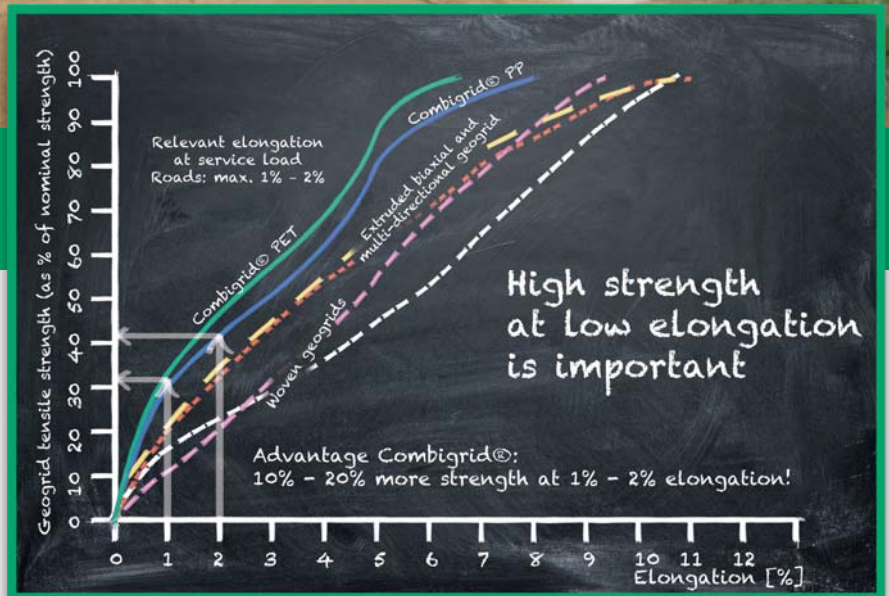 Geogrid tensile strength (as % of nominal strength)
100
90
80
70
60
50
40
30
20
10
0
Relevant elongation
at service load
Roads: max. 1% - 2%
Combigrid® PET
Combigrid® PP
Extruded biaxial and
multi-directional geogrid
Woven geogrids
High strength
at low elongation
is important
Advantage Combigrid®:
10% - 20% more strength at 1% - 2% elongation!
0 1 2 3 4 5 6 7 8 9 10 11 12
Elongation [%]